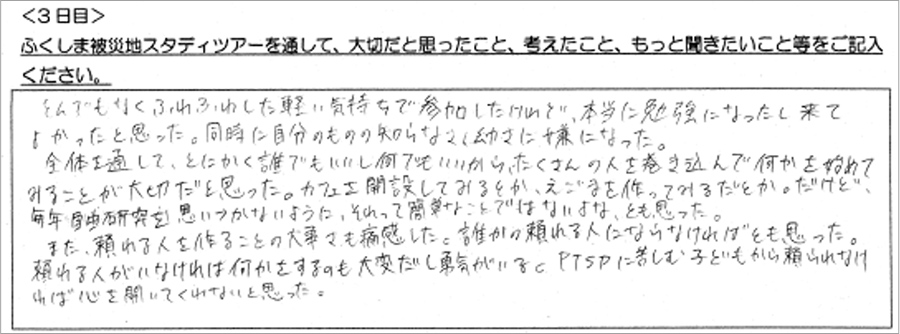 <3日目>
ふくしま被災地スタディツアーを通して、大切だと思ったこと、考えたこと、もっと聞きたいこと等をご記入
ください。
とんでもなくふわふわした軽い気持ちで参加したけれど、本当に勉強になったし来て
よかったと思った。同時に自分のものの知らなさ、幼さに嫌になった。
全体を通して、とにかく誰でもいいし何でもいいから、たくさんの人を巻き込んで何かを始めて
みることが大切だと思った。カフェを開設してみるとか、えごまを作ってみるだとか。だけど、
毎年自由研究を思いつかないように、それって簡単なことではないよな、とも思った。
また、頼れる人を作ることの大事さも痛感した。誰かの頼れる人にならなければとも思った。
頼れる人がいなければ何かをするのも大変だし勇気がいる。PTSPに苦しむ子どもから頼られなけ
れば心を開いてくれないと思った。